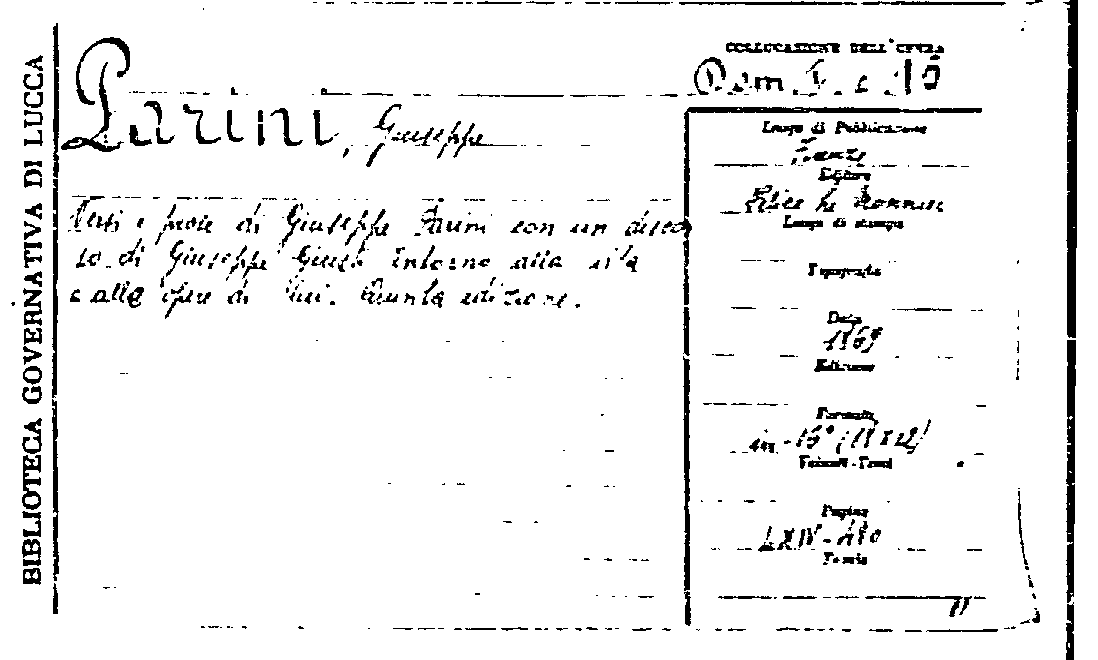 BIBLIOTECA GOVERNATIVA DI LUCCA
COLLOCAZIONE DELL'OPERA
Dom. I. c. 10
Parini, Giuseppe
Versi e prose di Giuseppe Parini con un discor
so di Giuseppe Giusti intorno alla vita
e alle opere di lui. Quinta edizione.
Luogo di Pubblicazione
Firenze
Editore
Felice Le Monnier
Luogo di stampa
Tipografia
Data
Edizione
Formato
in-16°
Volumi-Tomi
Pagine
LXIV-480
Tavole